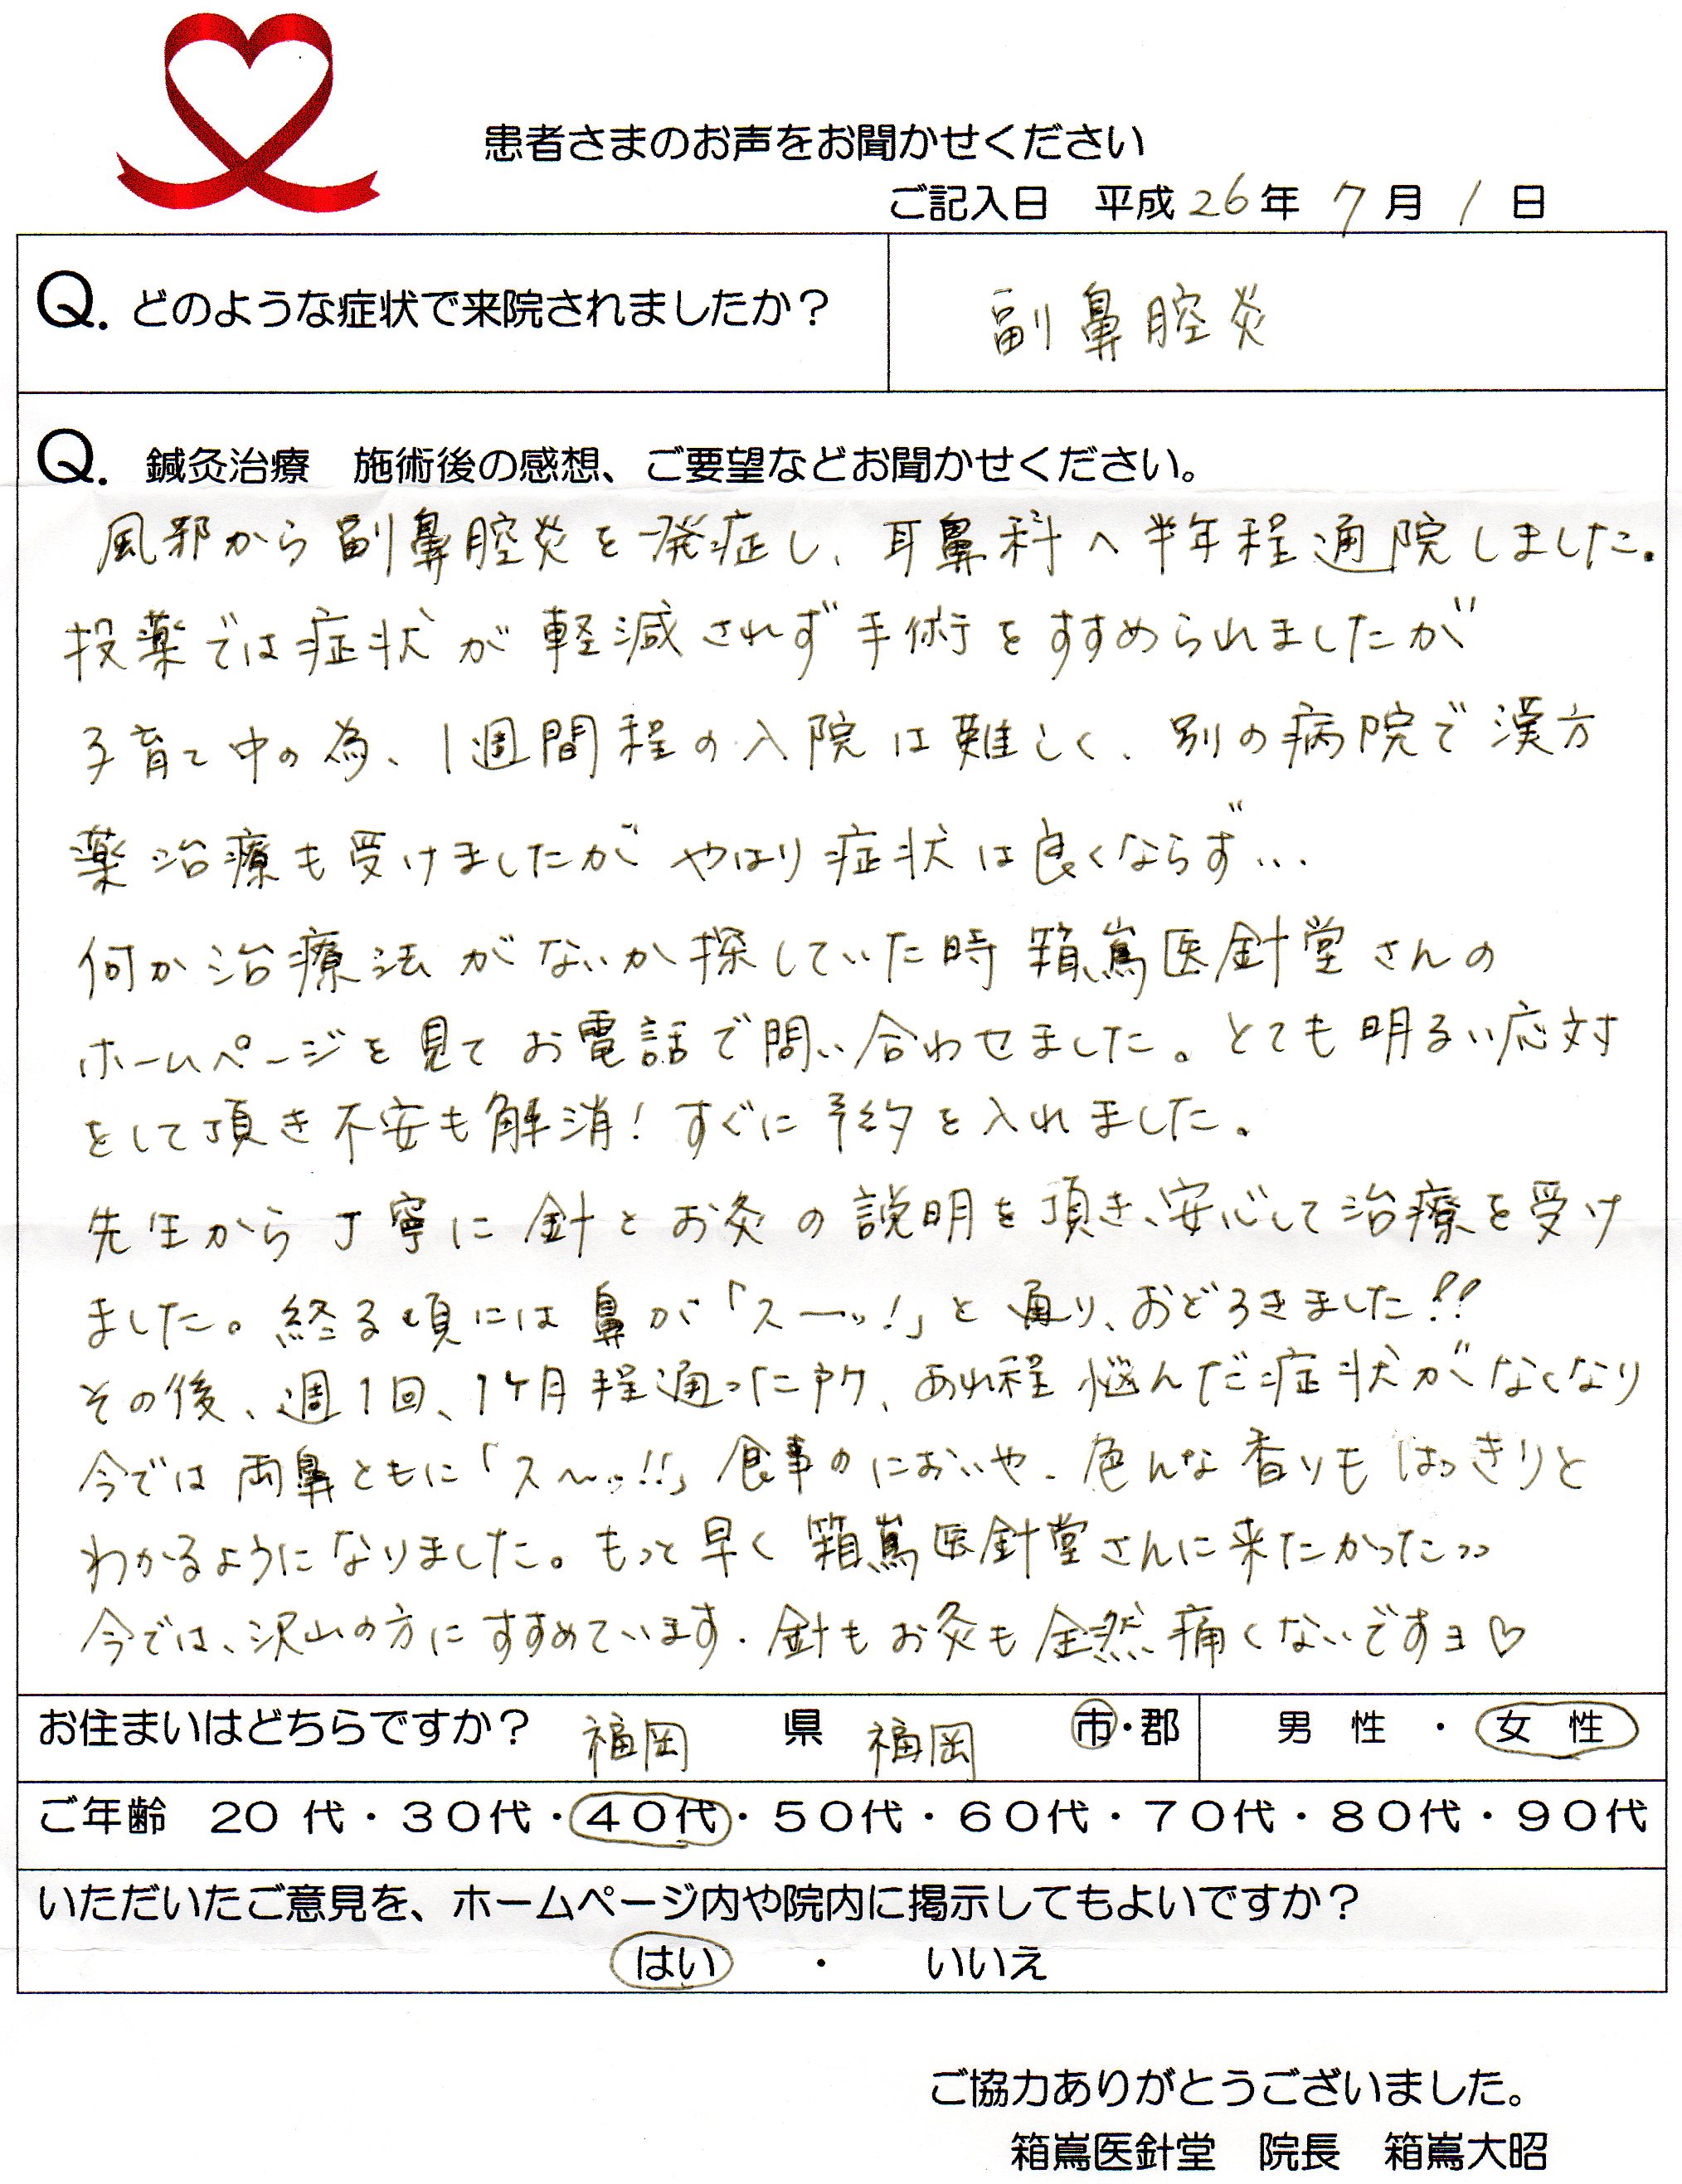 患者さまのお声をお聞かせください
ご記入日 平成26年 7月 1日
Q. どのような症状で来院されましたか?
副鼻腔炎
Q. 鍼灸治療 施術後の感想、ご要望などお聞かせください。
風邪から副鼻腔炎を発症し、耳鼻科へ半年程通院しました。
投薬では症状が軽減されず手術をすすめられましたが
子育て中の為、1週間程の入院は難しく、別の病院で漢方
薬治療も受けましたがやはり症状は良くならず…
何か治療法がないか探していた時箱嶌医針堂さんの
ホームページを見てお電話で問い合わせました。とても明るい応対
をして頂き不安も解消!すぐに予約を入れました。
先生から丁寧に針とお灸の説明を頂き、安心して治療を受け
ました。終る頃には鼻が「スーッ!」と通り、おどろきました!!
その後、週1回、1ヶ月程通った所、あれ程悩んだ症状がなくなり
今では両鼻ともに「ス〜ッ!!」食事のにおいや、色んな香りもはっきりと
わかるようになりました。もっと早く箱嶌医針堂さんに来たかったッッ
今では、沢山の方にすすめています。針もお灸も全然痛くないですョ♡
お住まいはどちらですか? 福岡 県 福岡 市・郡 男性・女性
ご年齢 20代・30代・40代・50代・60代・70代・80代・90代
いただいたご意見を、ホームページ内や院内に掲示してもよいですか?
はい ・ いいえ
ご協力ありがとうございました。
箱嶌医針堂 院長 箱嶌大昭